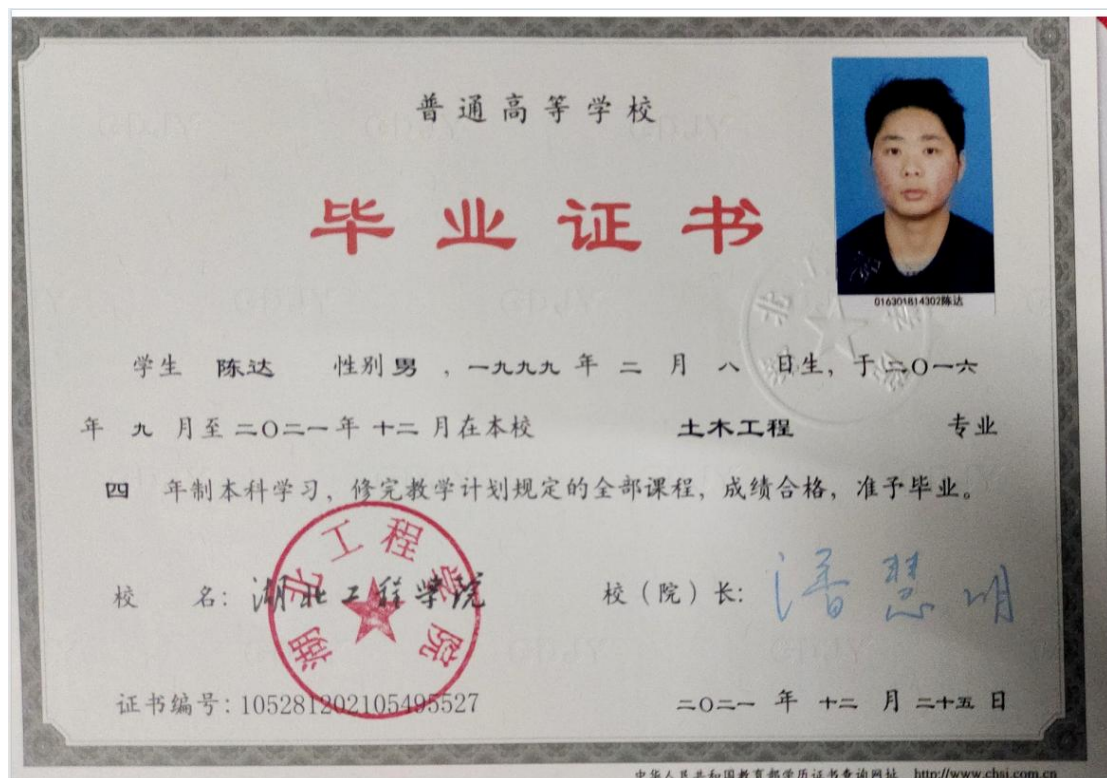 普通高等学校
毕业证书
016301814302陈达
学生 陈达 性别 男 ，一九九九 年 二 月 八 日生，于 二〇一六
年 九 月至 二〇二一 年 十二 月在本校 土木工程 专业
四 年制本科学习，修完教学计划规定的全部课程，成绩合格，准予毕业。
湖北工程学院
校 名：湖北工程学院 校（院）长：潘慧明
证书编号：105281202105495527 二〇二一 年 十二 月 二十五 日
中华人民共和国教育部学历证书查询网址 http://www.chsi.com.cn